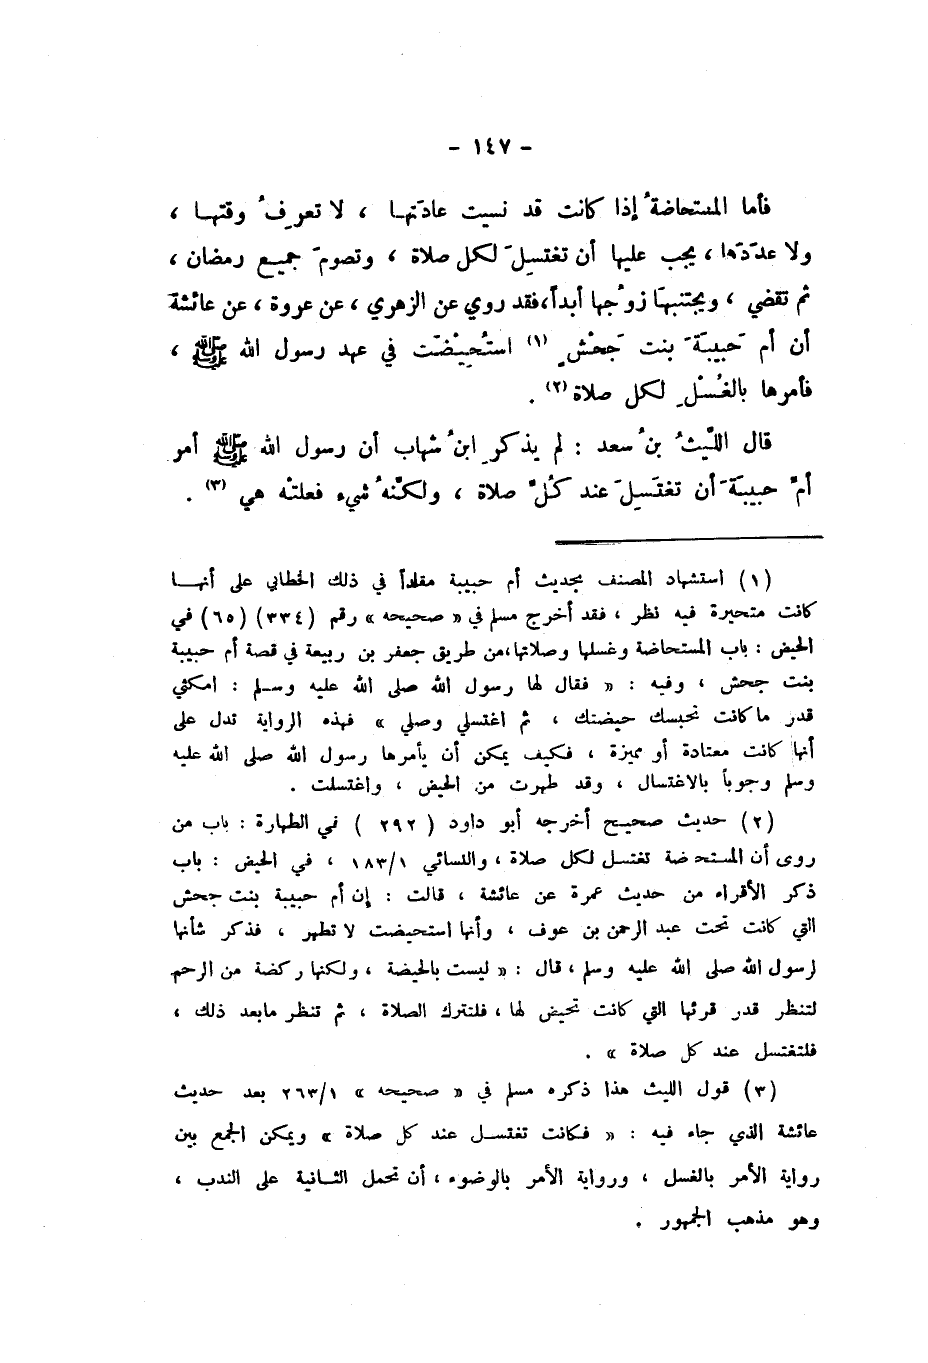 - ١٤٧ -
فأما المستحاضةُ إذا كانت قد نسيت عادَتها ، لا تعرِفُ وقتها ،
ولا عدَدَها ، يجب عليها أن تغتسِلَ لكل صلاة ، وتصومَ جميع رمضان ،
ثم تقضي ، ويجتنبها زوجُها أبداً، فقد روي عن الزهري ، عن عروة ، عن عائشة
أن أم حَبيبَةَ بنت جَحْشٍ (١) استُحِيْضَت في عهد رسول الله ﷺ ،
فأمرها بالغُسْلِ لكل صلاة (٢) .
قال الليثُ بنُ سعد : لم يذكرِ ابنُ شهاب أن رسول الله ﷺ أمر
أمَّ حبيبَةَ أن تغتَسِلَ عند كُلِّ صلاة ، ولكنَّهُ شيء فعلته هي (٣) .
(١) استشهاد المصنف بحديث أم حبيبة مقلداً في ذلك الخطابي على أنهـا
كانت متحيرة فيه نظر ، فقد أخرج مسلم في « صحيحه » رقم (٣٣٤) (٦٥) في
الحيض : باب المستحاضة وغسلها وصلاتها، من طريق جعفر بن ربيعة في قصة أم حبيبة
بنت جحش ، وفيه : « فقال لها رسول الله صلى الله عليه وسـلم : امكثي
قدر ما كانت تحبسك حيضتك ، ثم اغتسلي وصلي » فهذه الرواية تدل على
أنها كانت معتادة أو مميزة ، فكيف يمكن أن يأمرها رسول الله صلى الله عليه
وسلم وجوباً بالاغتسال ، وقد طهرت من الحيض ، واغتسلت .
(٢) حديث صحيح أخرجه أبو داود ( ٢٩٢ ) في الطهارة : باب من
روى أن المستحاضة تغتسل لكل صلاة ، والنسائي ١/١٨٣ ، في الحيض : باب
ذكر الأقراء من حديث عمرة عن عائشة ، قالت : إن أم حبيبة بنت جحش
التي كانت تحت عبد الرحمن بن عوف ، وأنها استحيضت لا تطهر ، فذكر شأنها
لرسول الله صلى الله عليه وسلم ، قال : « ليست بالحيضة ، ولكنها ركضة من الرحم
لتنظر قدر قرئها التي كانت تحيض لها ، فلتترك الصلاة ، ثم تنظر مابعد ذلك ،
فلتغتسل عند كل صلاة » .
(٣) قول الليث هذا ذكره مسلم في « صحيحه » ١/٢٦٣ بعد حديث
عائشة الذي جاء فيه : « فكانت تغتسـل عند كل صلاة » ويمكن الجمع بين
رواية الأمر بالغسل ، ورواية الأمر بالوضوء ، أن تحمل الثـانية على الندب ،
وهو مذهب الجمهور .